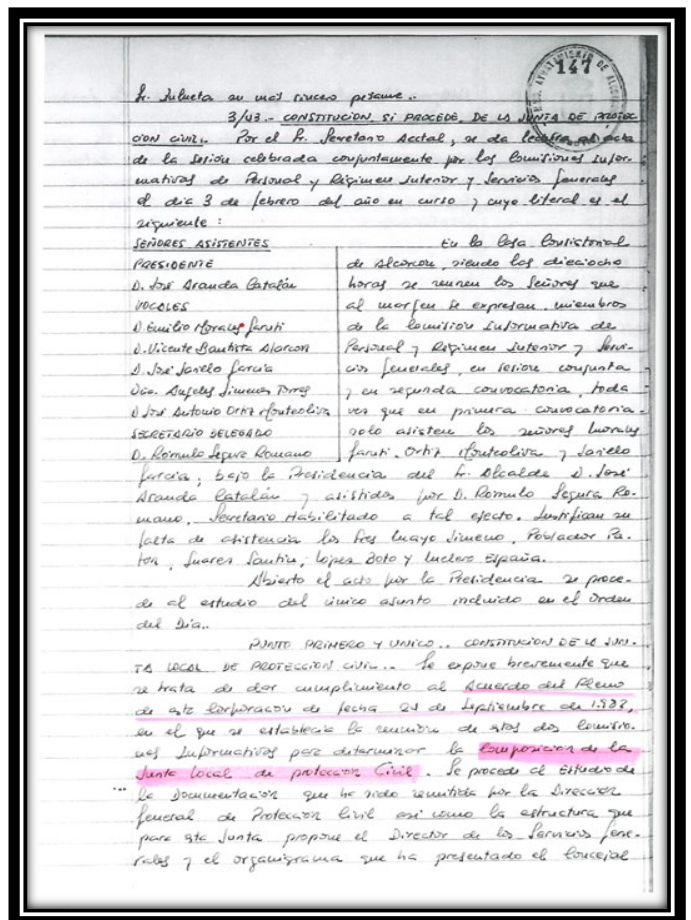 147
AYUNTAMIENTO DE
Sr. su más sincero pésame..
3/43.- CONSTITUCION, SI PROCEDE, DE LA JUNTA DE PROTEC
CION CIVIL. Por el Sr. Secretario Acctal, se da lectura al acta
de la sesión celebrada conjuntamente por las Comisiones Infor-
mativas de Personal y Régimen Interior y Servicios Generales
el dia 3 de febrero del año en curso, y cuyo literal es el
siguiente:
SEÑORES ASISTENTES
PRESIDENTE
D. José Aranda Catalán
VOCALES
D. Emilio Morales
D. Vicente Bautista Alarcon
D. José García
Dña. Angeles Jimenez Torres
D. José Antonio Ortiz Monteoliva
SECRETARIO DELEGADO
D. Rómulo Segura Romano
En la Casa Consistorial
de Alcorcon, siendo las dieciocho
horas se reunen los Señores que
al margen se expresan, miembros
de la Comisión Informativa de
Personal y Régimen Interior y Servi-
cios Generales, en sesión conjunta
y en segunda convocatoria, toda
vez que en primera convocatoria
solo asisten los señores Morales
Ortiz Monteoliva y
García, bajo la Presidencia del Sr. Alcalde D. José
Aranda Catalán y asistidos por D. Romulo Segura Ro-
mano, Secretario Habilitado a tal efecto. Justifican su
falta de asistencia los Sres Jimeno, Poblador Pa-
ton, Suarez López y España.
Abierto el acto por la Presidencia se proce-
de al estudio del único asunto incluido en el Orden
del Dia..
PUNTO PRIMERO Y UNICO.. CONSTITUCION DE LA JUN-
TA LOCAL DE PROTECCION CIVIL.. Se expone brevemente que
se trata de dar cumplimiento al Acuerdo del Pleno
de esta Corporación de fecha de Septiembre de 1.982,
en el que se establecia la reunión de estas dos Comisio-
nes Informativas para determinar la Composicion de la
Junta Local de protección Civil. Se procede al Estudio de
la Documentación que ha sido remitida por la Dirección
General de Protección Civil asi como la estructura que
para esta Junta propone el Director de los Servicios Gene-
rales y el organigrama que ha presentado el Concejal